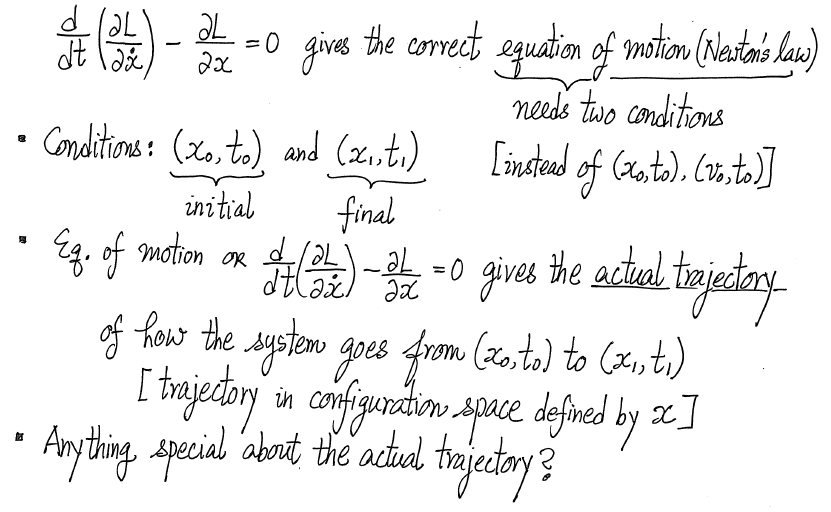 d/dt (∂L/∂ẋ) − ∂L/∂x = 0 gives the correct equation of motion (Newton's law)
needs two conditions
▪ Conditions: (x₀, t₀) and (x₁, t₁) [instead of (x₀,t₀), (v₀,t₀)]
initial final
▪ Eq. of motion OR d/dt (∂L/∂ẋ) − ∂L/∂x = 0 gives the actual trajectory
of how the system goes from (x₀, t₀) to (x₁, t₁)
[trajectory in configuration space defined by x]
▪ Anything special about the actual trajectory?